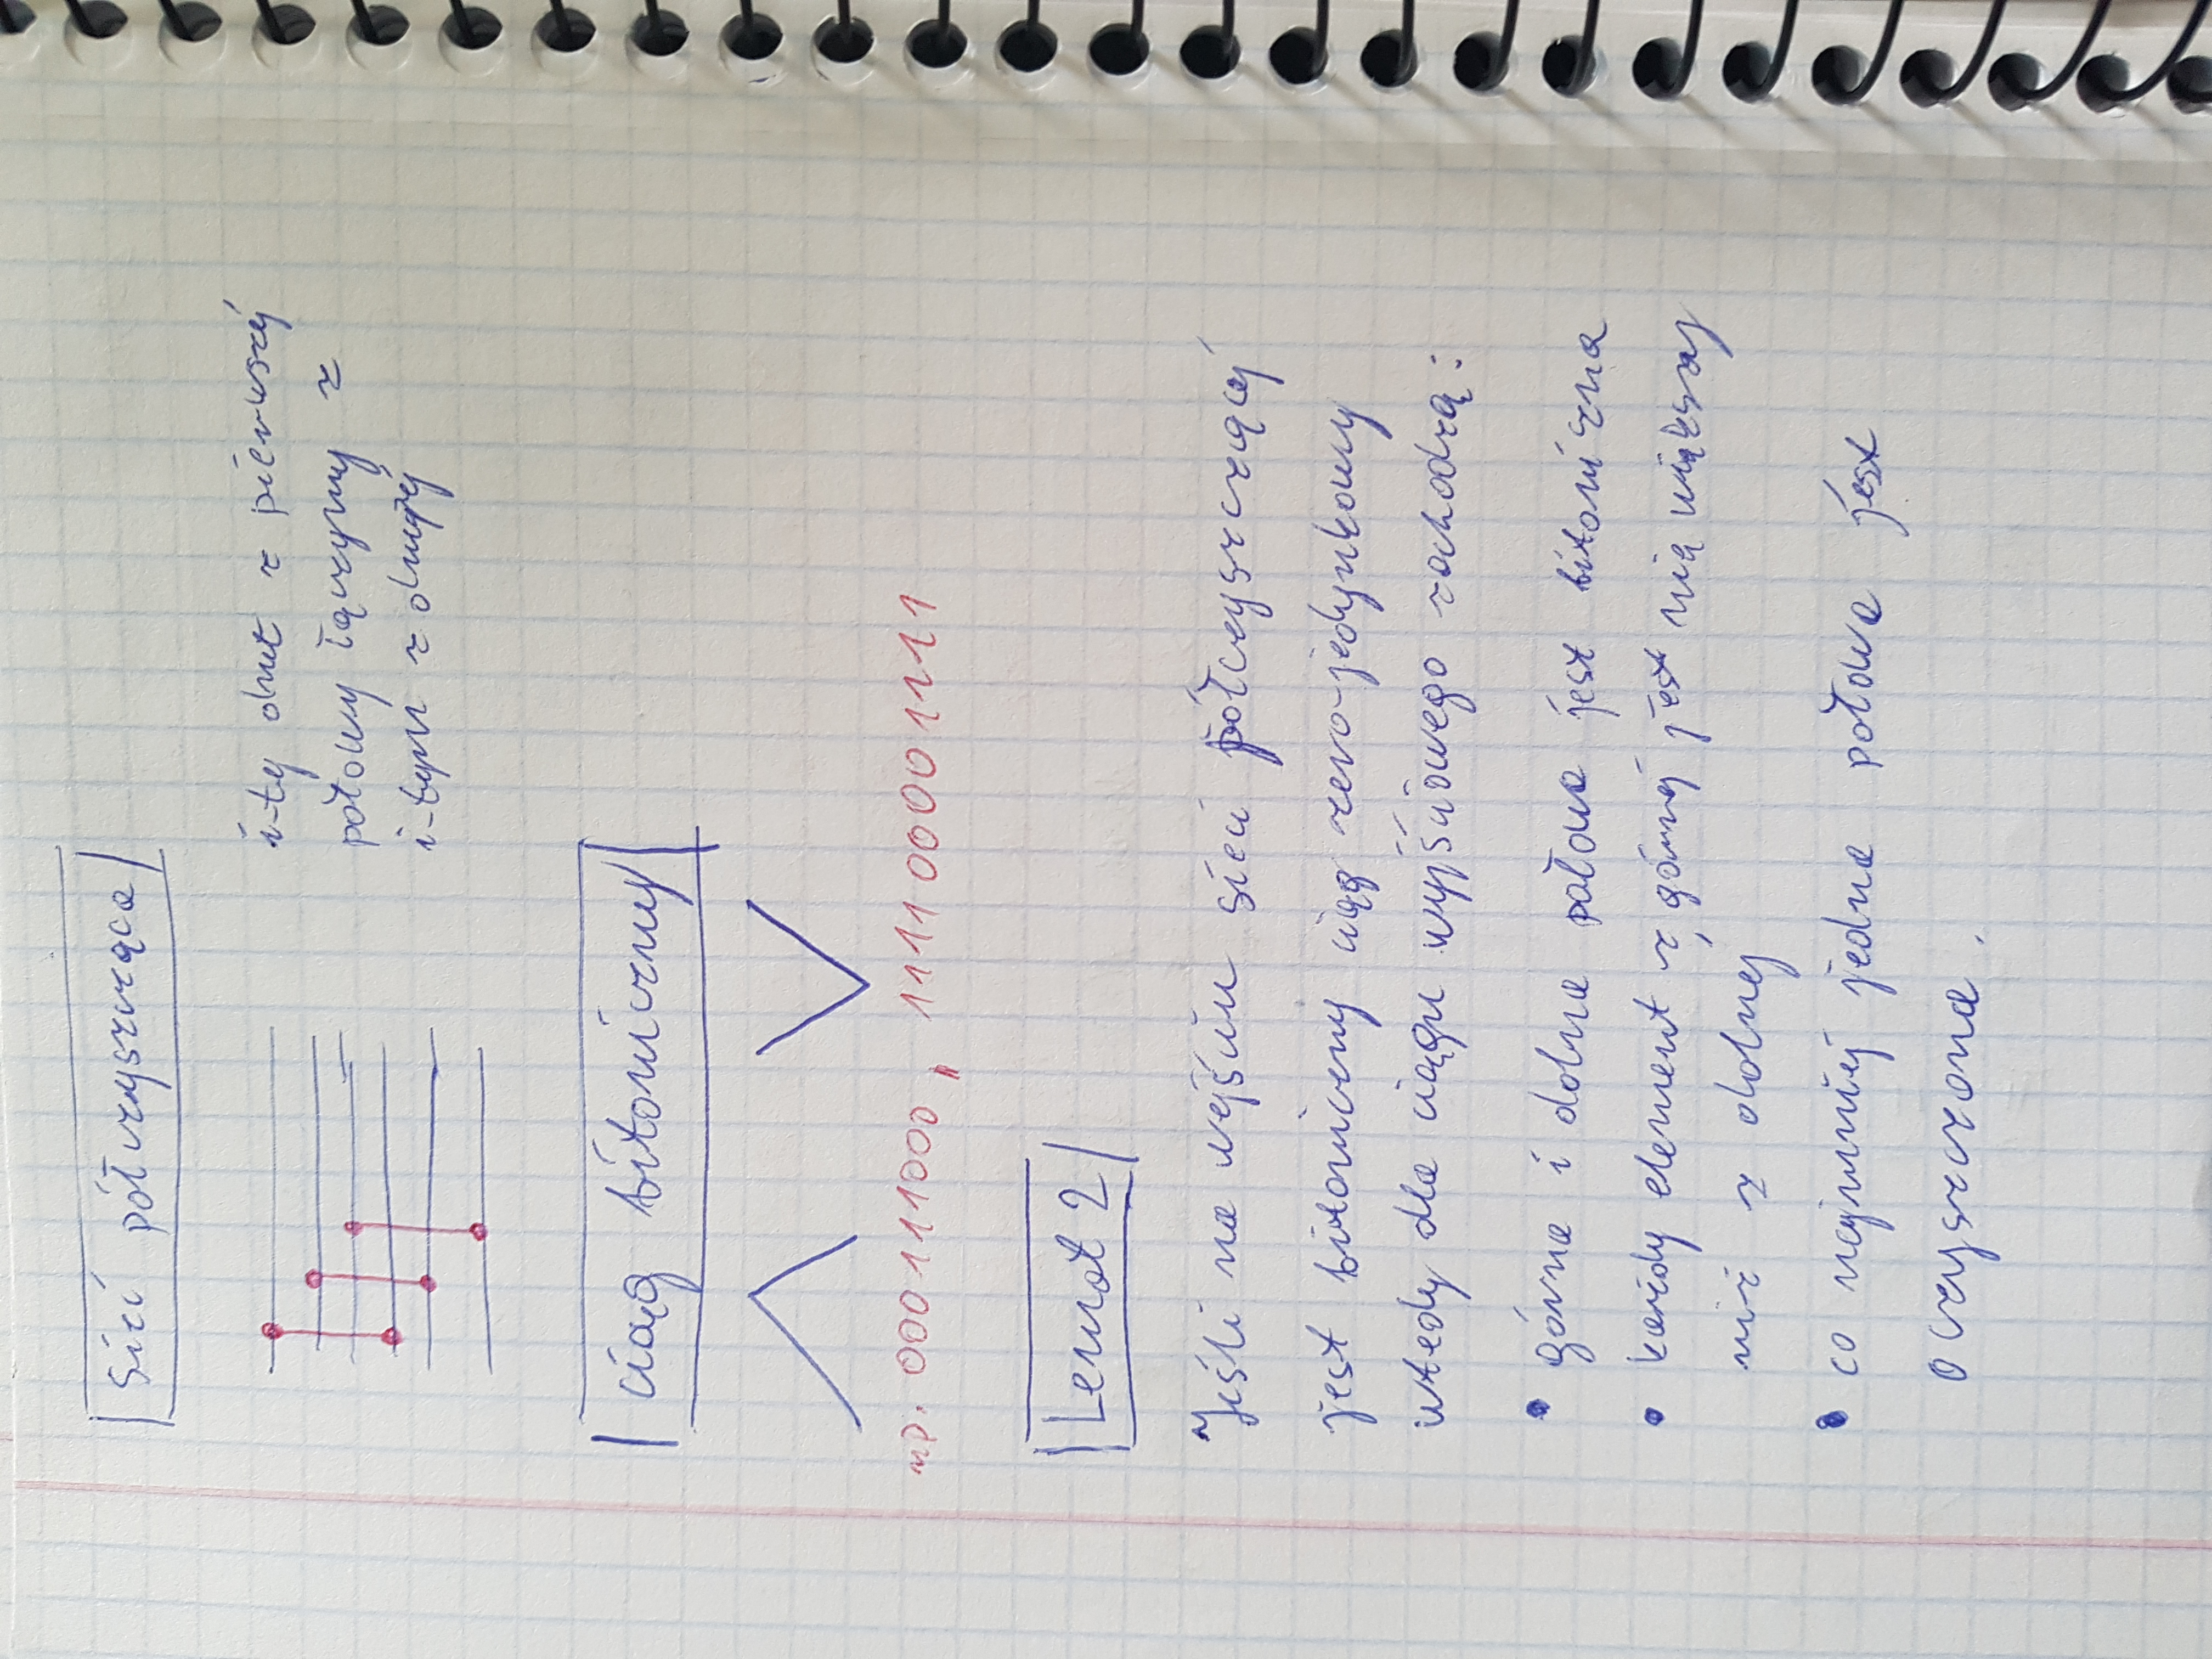 Sieć półczyszcząca
i-ty drut z pierwszej
połowy łączymy z
i-tym z drugiej
ciąg bitoniczny
np. 00011000, 1111000001111
Lemat 2
Jeśli na wejściu sieci półczyszczącej
jest bitoniczny ciąg zero-jedynkowy
wtedy dla ciągu wyjściowego zachodzą:
• górna i dolna połowa jest bitoniczna
• każdy element z górnej jest nie większy
niż z dolnej
• co najmniej jedna połowa jest
oczyszczona.